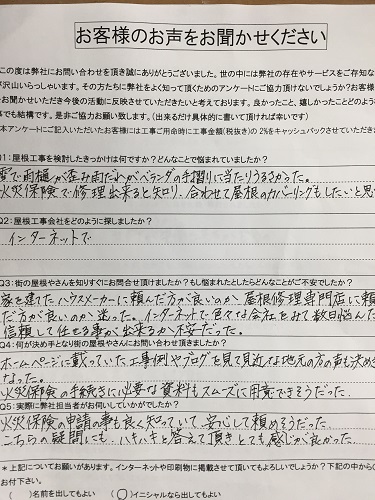 お客様のお声をお聞かせください
この度は弊社にお問い合わせを頂き誠にありがとうございました。世の中には弊社の存在やサービスをご存知な
が沢山いらっしゃいます。その方たちに弊社をよく知って頂くためのアンケートにご協力頂けないでしょうか?お客
をお聞かせいただき今後の活動に反映させていただきたいと考えております。良かったこと、嬉しかったことどのよう
事でも結構です。是非ご協力お願い致します。（出来るだけ具体的に書いて頂ければ幸いです）
本アンケートにご記入いただいたお客様には工事ご用命時に工事金額(税抜き)の 2%をキャッシュバックさせていただき
Q1：屋根工事を検討したきっかけは何ですか？どんなことで悩まれていましたか？
雪で雨樋が歪み雨だれがベランダの手摺りに当たりうるさかった。
火災保険で修理出来ると知り、合わせて屋根のカバーリングもしたいと思
Q2：屋根工事会社をどのように探しましたか？
インターネットで
Q3：街の屋根やさんを知りすぐにお問合せ頂けましたか？もし悩まれたとしたらどんなことがご不安でしたか？
家を建てたハウスメーカーに頼んだ方が良いのか、屋根修理専門店に頼
だ方が良いのか迷った。インターネットで色々な会社をみて数日悩んた
信頼して任せる事が出来るか不安だった。
Q4：何が決め手となり街の屋根やさんにお問い合わせ頂きましたか？
ホームページに載っていた工事例やブログを見て見近な地元の方の声も決め
なった。
火災保険の手続きに必要な資料もスムーズに用意できそうだった。
Q5：実際に弊社担当者がお伺いしていかがでしたか？
火災保険の申請の事も良く知っていて、安心して頼めそうだった。
こちらの疑問にも、ハキハキと答えて頂きとても感じが良かった。
＊上記についてお願いがあります。インターネットや印刷物に掲載させて頂いてもよろしいでしょうか？下記の中から（
お付下さい。
（ ）名前を出してもよい （○）イニシャルなら出してもよい